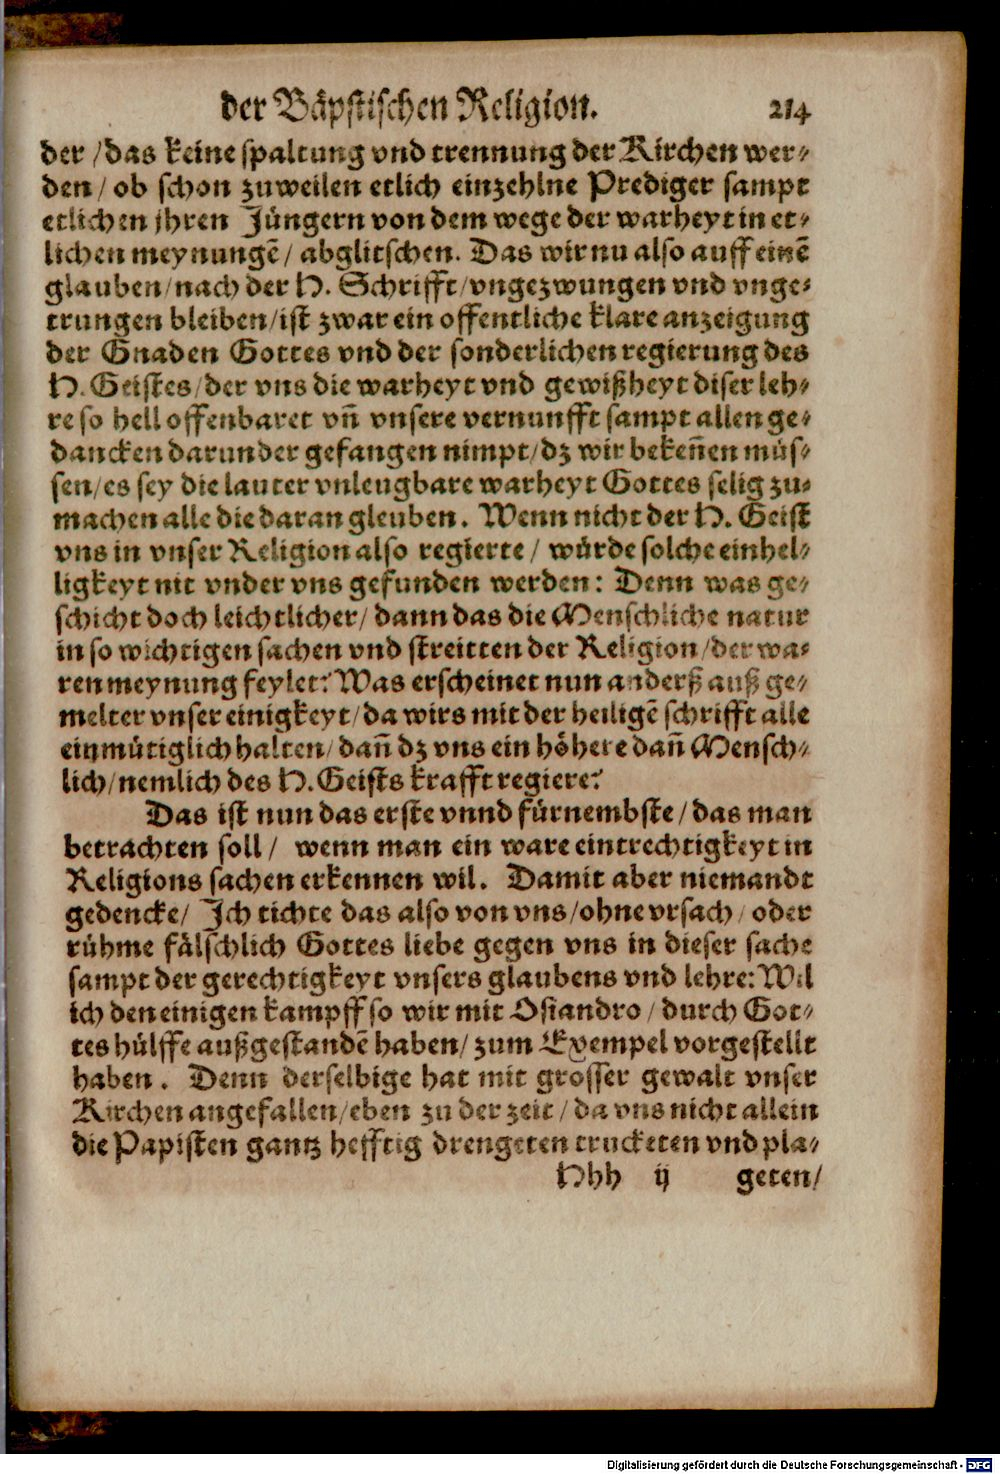 der Bäpstischen Religion. 214
der /das keine spaltung vnd trennung der Kirchen wer-
den/ ob schon zuweilen etlich einzehlne Prediger sampt
etlichen jhren Jüngern von dem wege der warheyt in et-
lichen meynungē/ abglitschen. Das wir nu also auff einē
glauben/nach der H. Schrifft/vngezwungen vnd vnge-
trungen bleiben/ist zwar ein offentliche klare anzeigung
der Gnaden Gottes vnd der sonderlichen regierung des
H. Geistes/der vns die warheyt vnd gewißheyt diser leh-
re so hell offenbaret vñ vnsere vernunfft sampt allen ge-
dancken darunder gefangen nimpt/dz wir bekeñen müs-
sen/es sey die lauter vnleugbare warheyt Gottes selig zu-
machen alle die daran gleuben. Wenn nicht der H. Geist
vns in vnser Religion also regierte/ würde solche einhel-
ligkeyt nit vnder vns gefunden werden: Denn was ge-
schicht doch leichtlicher/ dann das die Menschliche natur
in so wichtigen sachen vnd streitten der Religion/der wa-
ren meynung feylet? Was erscheinet nun anderß auß ge-
melter vnser einigkeyt/da wirs mit der heiligē schrifft alle
einmütiglich halten/dañ dz vns ein höhere dañ Mensch-
lich/nemlich des H. Geists krafft regiere?
Das ist nun das erste vnnd fürnembste/das man
betrachten soll/ wenn man ein ware eintrechtigkeyt in
Religions sachen erkennen wil. Damit aber niemandt
gedencke/ Ich tichte das also von vns/ohne vrsach/oder
rühme fälschlich Gottes liebe gegen vns in dieser sache
sampt der gerechtigkeyt vnsers glaubens vnd lehre: Wil
ich den einigen kampff so wir mit Osiandro/durch Got-
tes hülffe außgestandē haben/ zum Exempel vorgestellt
haben. Denn derselbige hat mit grosser gewalt vnser
Kirchen angefallen/eben zu der zeit/da vns nicht allein
die Papisten gantz hefftig drengeten truckten vnd pla-
Hhh ij geten/
Digitalisierung gefördert durch die Deutsche Forschungsgemeinschaft - DFG